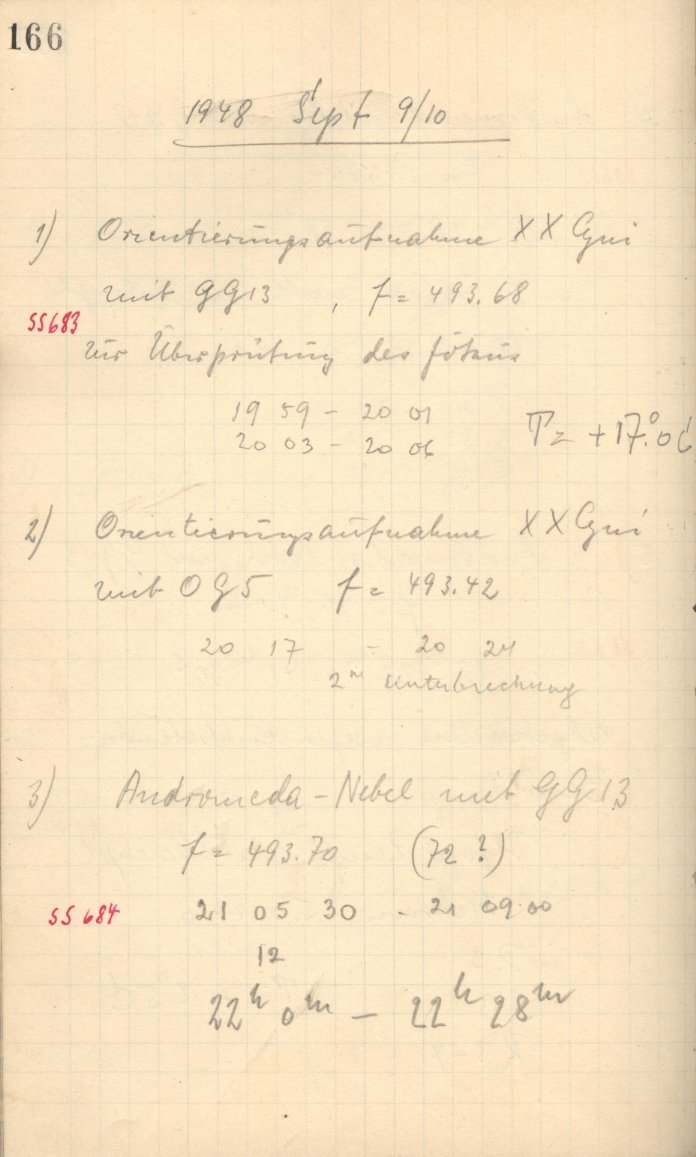 166
1948 Sept 9/10
1) Orientierungsaufnahme XX Cygni
mit GG13 , f = 493.68
SS683
zur Überprüfung des Fokus
19 59 - 20 01
20 03 - 20 06
T = +17°.06
2) Orientierungsaufnahme XX Cygni
mit OG5 f = 493.42
20 17 - 20 24
2m Unterbrechung
3) Andromeda-Nebel mit GG13
f = 493.70 (72?)
SS 684
21 05 30 - 21 09 00
12
22h 0m - 22h 28m